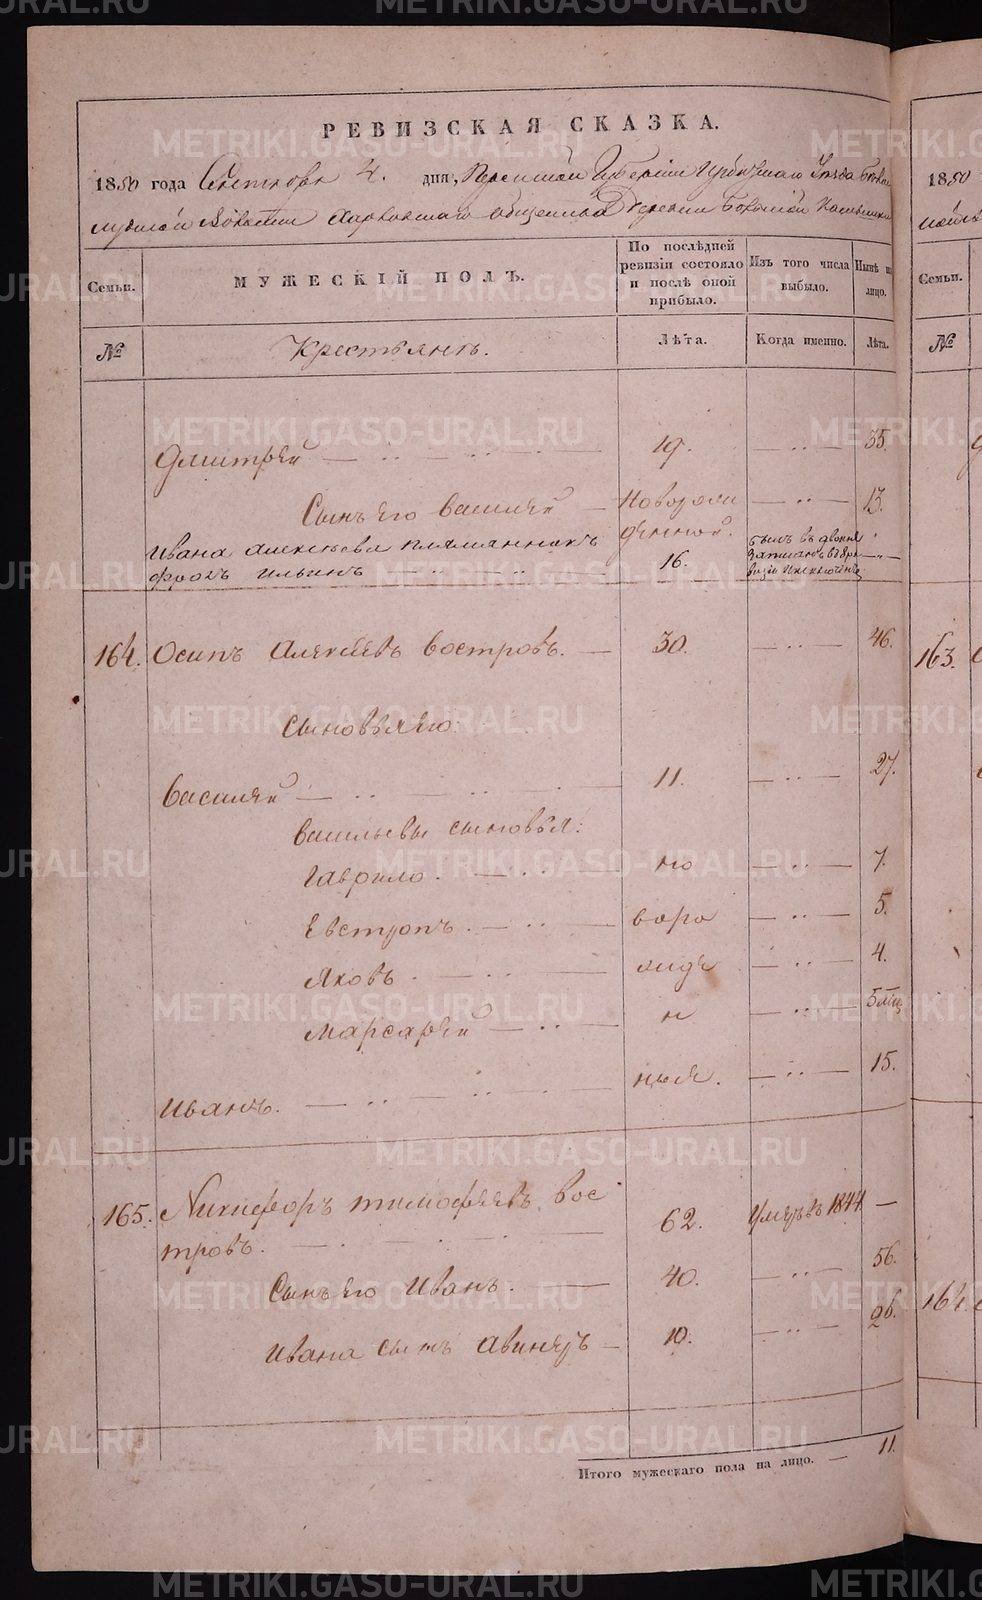 РЕВИЗСКАЯ СКАЗКА.
1850 года Сентября 4. дня, Пермской Губернии Уезда
волости общества Деревни
Семьи.
МУЖЕСКІЙ ПОЛЪ.
По послѣдней ревизіи состояло и послѣ оной прибыло.
Изъ того числа выбыло.
Нынѣ на лицо.
№
Крестьянъ.
Лѣта.
Когда именно.
Лѣта.
Дмитрей 19. 35.
Сынъ его Василей Новорож 13.
денной.
Ивана Алексеева племянникъ
Фролъ Ильинъ 16.
164. Осипъ Алексеевъ Востровъ. 30. 46.
сыновья его:
Василей 11. 27.
Васильевы сыновья:
Гаврило. но 7.
Евстропъ. воро 5.
Яковъ жде 4.
н 5 мц
Иванъ. ныя. 15.
165. Никифоръ Тимофеевъ Вос
тровъ. 62. Умеръ въ 1844
Сынъ его Иванъ. 40. 56.
Ивана сынъ 10. 26.
Итого мужескаго пола на лицо. — 11.
1850
Семьи.
№
163.
164.
METRIKI.GASO-URAL.RU